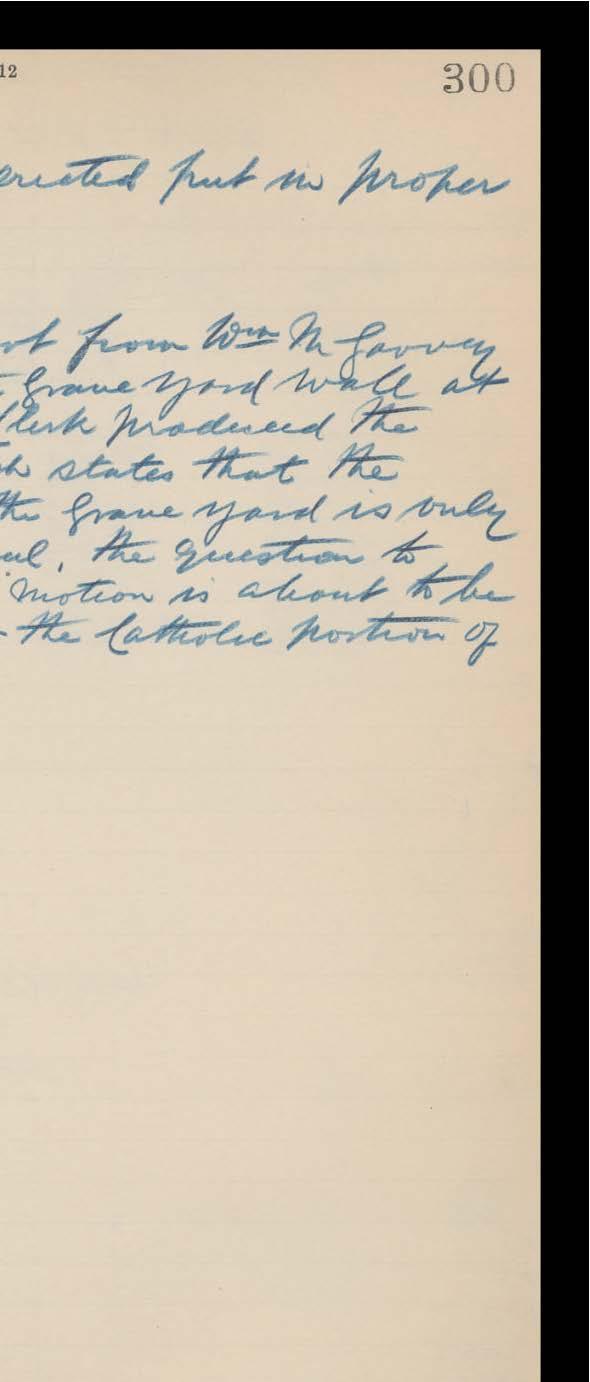 12
300
erected put in proper
from Wm McGarvey
Grave Yard wall at
Clerk produced the
states that the
the Grave Yard is only
the question to
motion is about to be
the Catholic portion of